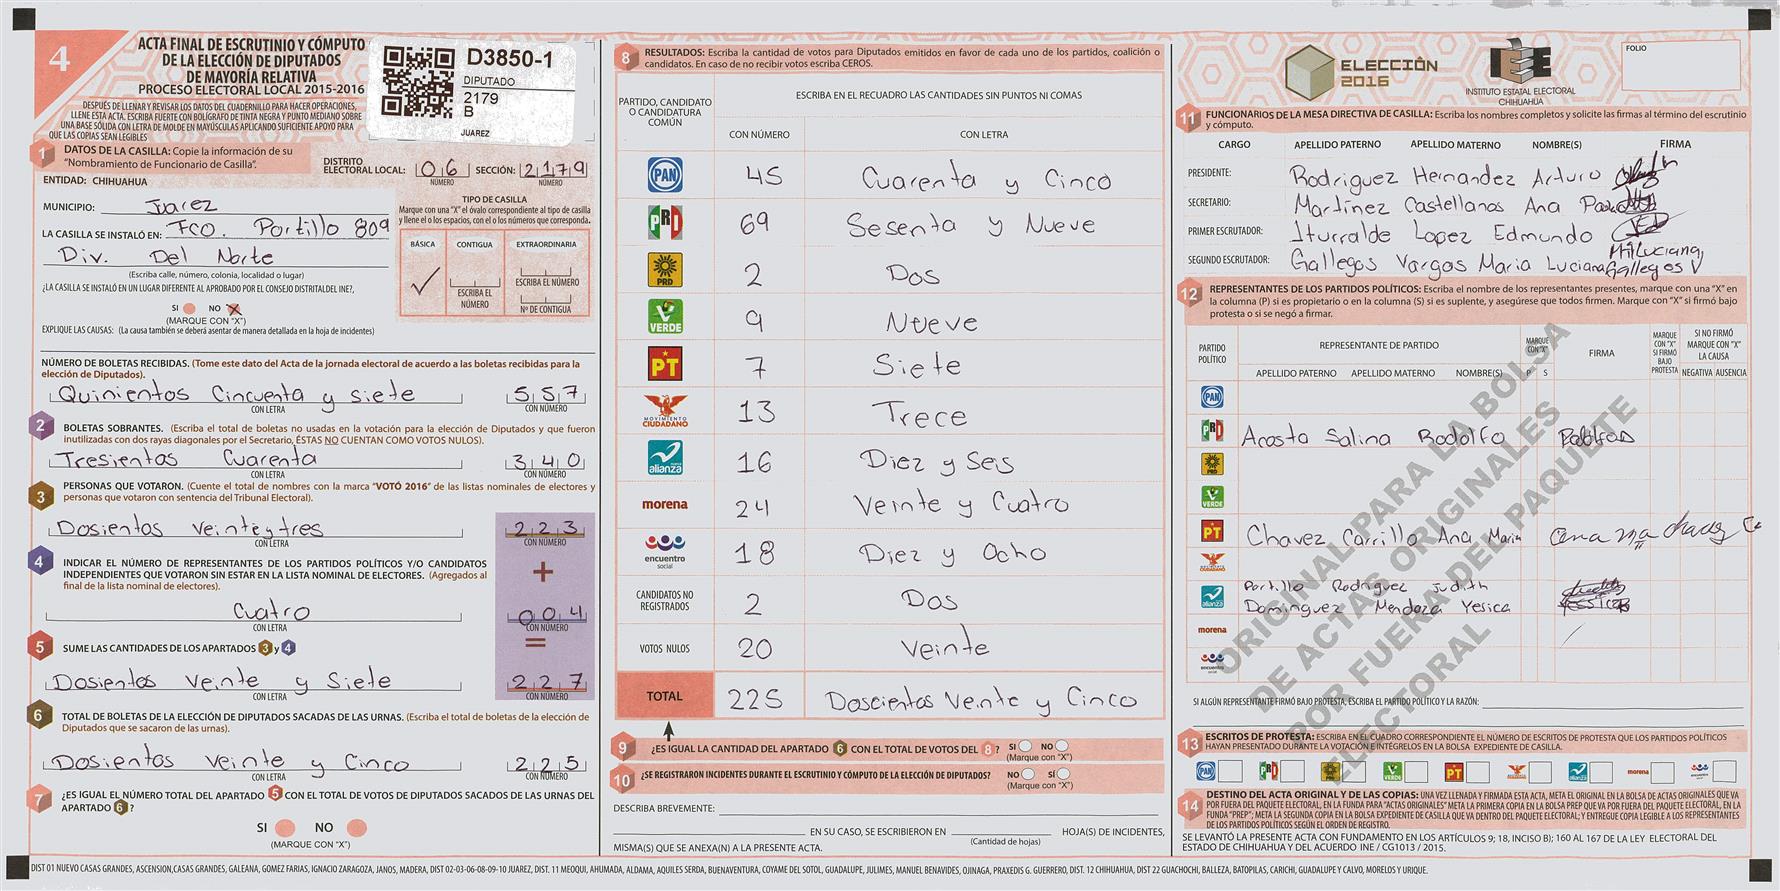 4
ACTA FINAL DE ESCRUTINIO Y CÓMPUTO
DE LA ELECCIÓN DE DIPUTADOS
DE MAYORÍA RELATIVA
PROCESO ELECTORAL LOCAL 2015-2016
DESPUÉS DE LLENAR Y REVISAR LOS DATOS DEL CUADERNILLO PARA HACER OPERACIONES,
LLENE ESTA ACTA. ESCRIBA FUERTE CON BOLÍGRAFO DE TINTA NEGRA Y PUNTO MEDIANO SOBRE
UNA BASE SÓLIDA CON LETRA DE MOLDE EN MAYÚSCULAS APLICANDO SUFICIENTE APOYO PARA
QUE LAS COPIAS SEAN LEGIBLES
D3850-1
DIPUTADO
2179
B
JUAREZ
1 DATOS DE LA CASILLA: Copie la información de su
"Nombramiento de Funcionario de Casilla".
DISTRITO
ELECTORAL LOCAL: 06 SECCIÓN: 2179
NÚMERO NÚMERO
ENTIDAD: CHIHUAHUA
MUNICIPIO: Juarez
LA CASILLA SE INSTALÓ EN: Fco. Portillo 809
Div. Del Norte
(Escriba calle, número, colonia, localidad o lugar)
TIPO DE CASILLA
Marque con una "X" el óvalo correspondiente al tipo de casilla
y llene el o los espacios, con el o los números que corresponda.
BÁSICA CONTIGUA EXTRAORDINARIA
ESCRIBA EL NÚMERO
ESCRIBA EL NÚMERO
Nº DE CONTIGUA
¿LA CASILLA SE INSTALÓ EN UN LUGAR DIFERENTE AL APROBADO POR EL CONSEJO DISTRITAL DEL INE?,
SI NO X
(MARQUE CON "X")
EXPLIQUE LAS CAUSAS: (La causa también se deberá asentar de manera detallada en la hoja de incidentes)
NÚMERO DE BOLETAS RECIBIDAS. (Tome este dato del Acta de la jornada electoral de acuerdo a las boletas recibidas para la
elección de Diputados).
Quinientos Cincuenta y siete 557
CON LETRA CON NÚMERO
2 BOLETAS SOBRANTES. (Escriba el total de boletas no usadas en la votación para la elección de Diputados y que fueron
inutilizadas con dos rayas diagonales por el Secretario, ÉSTAS NO CUENTAN COMO VOTOS NULOS).
Tresientos Cuarenta 340
CON LETRA CON NÚMERO
3 PERSONAS QUE VOTARON. (Cuente el total de nombres con la marca "VOTÓ 2016" de las listas nominales de electores y
personas que votaron con sentencia del Tribunal Electoral).
Dosientos veinteytres 223
CON LETRA CON NÚMERO
4 INDICAR EL NÚMERO DE REPRESENTANTES DE LOS PARTIDOS POLÍTICOS Y/O CANDIDATOS
INDEPENDIENTES QUE VOTARON SIN ESTAR EN LA LISTA NOMINAL DE ELECTORES. (Agregados al
final de la lista nominal de electores).
+
Cuatro 004
CON LETRA CON NÚMERO
=
5 SUME LAS CANTIDADES DE LOS APARTADOS 3 y 4
Dosientos Veinte y Siete 227
CON LETRA CON NÚMERO
6 TOTAL DE BOLETAS DE LA ELECCIÓN DE DIPUTADOS SACADAS DE LAS URNAS. (Escriba el total de boletas de la elección de
Diputados que se sacaron de las urnas).
Dosientos Veinte y Cinco 225
CON LETRA CON NÚMERO
7 ¿ES IGUAL EL NÚMERO TOTAL DEL APARTADO 5 CON EL TOTAL DE VOTOS DE DIPUTADOS SACADOS DE LAS URNAS DEL
APARTADO 6?
SI NO
(MARQUE CON "X")
8 RESULTADOS: Escriba la cantidad de votos para Diputados emitidos en favor de cada uno de los partidos, coalición o
candidatos. En caso de no recibir votos escriba CEROS.
PARTIDO, CANDIDATO
O CANDIDATURA
COMÚN
ESCRIBA EN EL RECUADRO LAS CANTIDADES SIN PUNTOS NI COMAS
CON NÚMERO CON LETRA
PAN 45 Cuarenta y Cinco
PRI 69 Sesenta y Nueve
PRD 2 Dos
VERDE 9 Nueve
PT 7 Siete
MOVIMIENTO CIUDADANO 13 Trece
alianza 16 Diez y Seis
morena 24 Veinte y Cuatro
encuentro social 18 Diez y Ocho
CANDIDATOS NO REGISTRADOS 2 Dos
VOTOS NULOS 20 Veinte
TOTAL 225 Doscientos Veinte y Cinco
9 ¿ES IGUAL LA CANTIDAD DEL APARTADO 6 CON EL TOTAL DE VOTOS DEL 8? SI NO
(Marque con "X")
10 ¿SE REGISTRARON INCIDENTES DURANTE EL ESCRUTINIO Y CÓMPUTO DE LA ELECCIÓN DE DIPUTADOS? NO SÍ
(Marque con "X")
DESCRIBA BREVEMENTE:
EN SU CASO, SE ESCRIBIERON EN HOJA(S) DE INCIDENTES,
(Cantidad de hojas)
MISMA(S) QUE SE ANEXA(N) A LA PRESENTE ACTA.
ELECCIÓN
2016
IEE
INSTITUTO ESTATAL ELECTORAL
CHIHUAHUA
FOLIO
11 FUNCIONARIOS DE LA MESA DIRECTIVA DE CASILLA: Escriba los nombres completos y solicite las firmas al término del escrutinio
y cómputo.
CARGO APELLIDO PATERNO APELLIDO MATERNO NOMBRE(S) FIRMA
PRESIDENTE: Rodriguez Hernandez Arturo
SECRETARIO: Martínez Castellanos Ana
PRIMER ESCRUTADOR: Iturralde Lopez Edmundo
SEGUNDO ESCRUTADOR: Gallegos Vargas Maria Luciana Gallegos V
12 REPRESENTANTES DE LOS PARTIDOS POLÍTICOS: Escriba el nombre de los representantes presentes, marque con una "X" en
la columna (P) si es propietario o en la columna (S) si es suplente, y asegúrese que todos firmen. Marque con "X" si firmó bajo
protesta o si se negó a firmar.
PARTIDO POLÍTICO
REPRESENTANTE DE PARTIDO
APELLIDO PATERNO APELLIDO MATERNO NOMBRE(S)
MARQUE CON "X"
P S
FIRMA
MARQUE CON "X" SI FIRMÓ BAJO PROTESTA
SI NO FIRMÓ MARQUE CON "X" LA CAUSA
NEGATIVA AUSENCIA
PAN
PRI Acosta Salina Rodolfo
PRD
VERDE
PT Chavez Carrillo Ana Maria
MOVIMIENTO CIUDADANO
alianza Portillo Rodriguez Judith
Dominguez Mendoza Yesica
morena
encuentro social
ORIGINAL PARA LA BOLSA
DE ACTAS ORIGINALES
POR FUERA DEL PAQUETE
ELECTORAL
SI ALGÚN REPRESENTANTE FIRMÓ BAJO PROTESTA, ESCRIBA EL PARTIDO POLÍTICO Y LA RAZÓN:
13 ESCRITOS DE PROTESTA: ESCRIBA EN EL CUADRO CORRESPONDIENTE EL NÚMERO DE ESCRITOS DE PROTESTA QUE LOS PARTIDOS POLÍTICOS
HAYAN PRESENTADO DURANTE LA VOTACIÓN E INTÉGRELOS EN LA BOLSA EXPEDIENTE DE CASILLA.
PAN PRI PRD VERDE PT MOVIMIENTO CIUDADANO alianza morena encuentro social
14 DESTINO DEL ACTA ORIGINAL Y DE LAS COPIAS: UNA VEZ LLENADA Y FIRMADA ESTA ACTA, META EL ORIGINAL EN LA BOLSA DE ACTAS ORIGINALES QUE VA
POR FUERA DEL PAQUETE ELECTORAL, EN LA FUNDA PARA "ACTAS ORIGINALES" META LA PRIMERA COPIA EN LA BOLSA PREP QUE VA POR FUERA DEL PAQUETE ELECTORAL, EN LA
FUNDA "PREP"; META LA SEGUNDA COPIA EN LA BOLSA EXPEDIENTE DE CASILLA QUE VA DENTRO DEL PAQUETE ELECTORAL; Y ENTREGUE COPIA LEGIBLE A LOS REPRESENTANTES
DE LOS PARTIDOS POLÍTICOS SEGÚN EL ORDEN DE REGISTRO.
SE LEVANTÓ LA PRESENTE ACTA CON FUNDAMENTO EN LOS ARTÍCULOS 9; 18, INCISO B); 160 AL 167 DE LA LEY ELECTORAL DEL
ESTADO DE CHIHUAHUA Y DEL ACUERDO INE / CG1013 / 2015.
DIST 01 NUEVO CASAS GRANDES, ASCENSION,CASAS GRANDES, GALEANA, GOMEZ FARIAS, IGNACIO ZARAGOZA, JANOS, MADERA, DIST 02-03-06-08-09-10 JUAREZ, DIST. 11 MEOQUI, AHUMADA, ALDAMA, AQUILES SERDA, BUENAVENTURA, COYAME DEL SOTOL, GUADALUPE, JULIMES, MANUEL BENAVIDES, OJINAGA, PRAXEDIS G. GUERRERO, DIST. 12 CHIHUAHUA, DIST 22 GUACHOCHI, BALLEZA, BATOPILAS, CARICHI, GUADALUPE Y CALVO, MORELOS Y URIQUE.